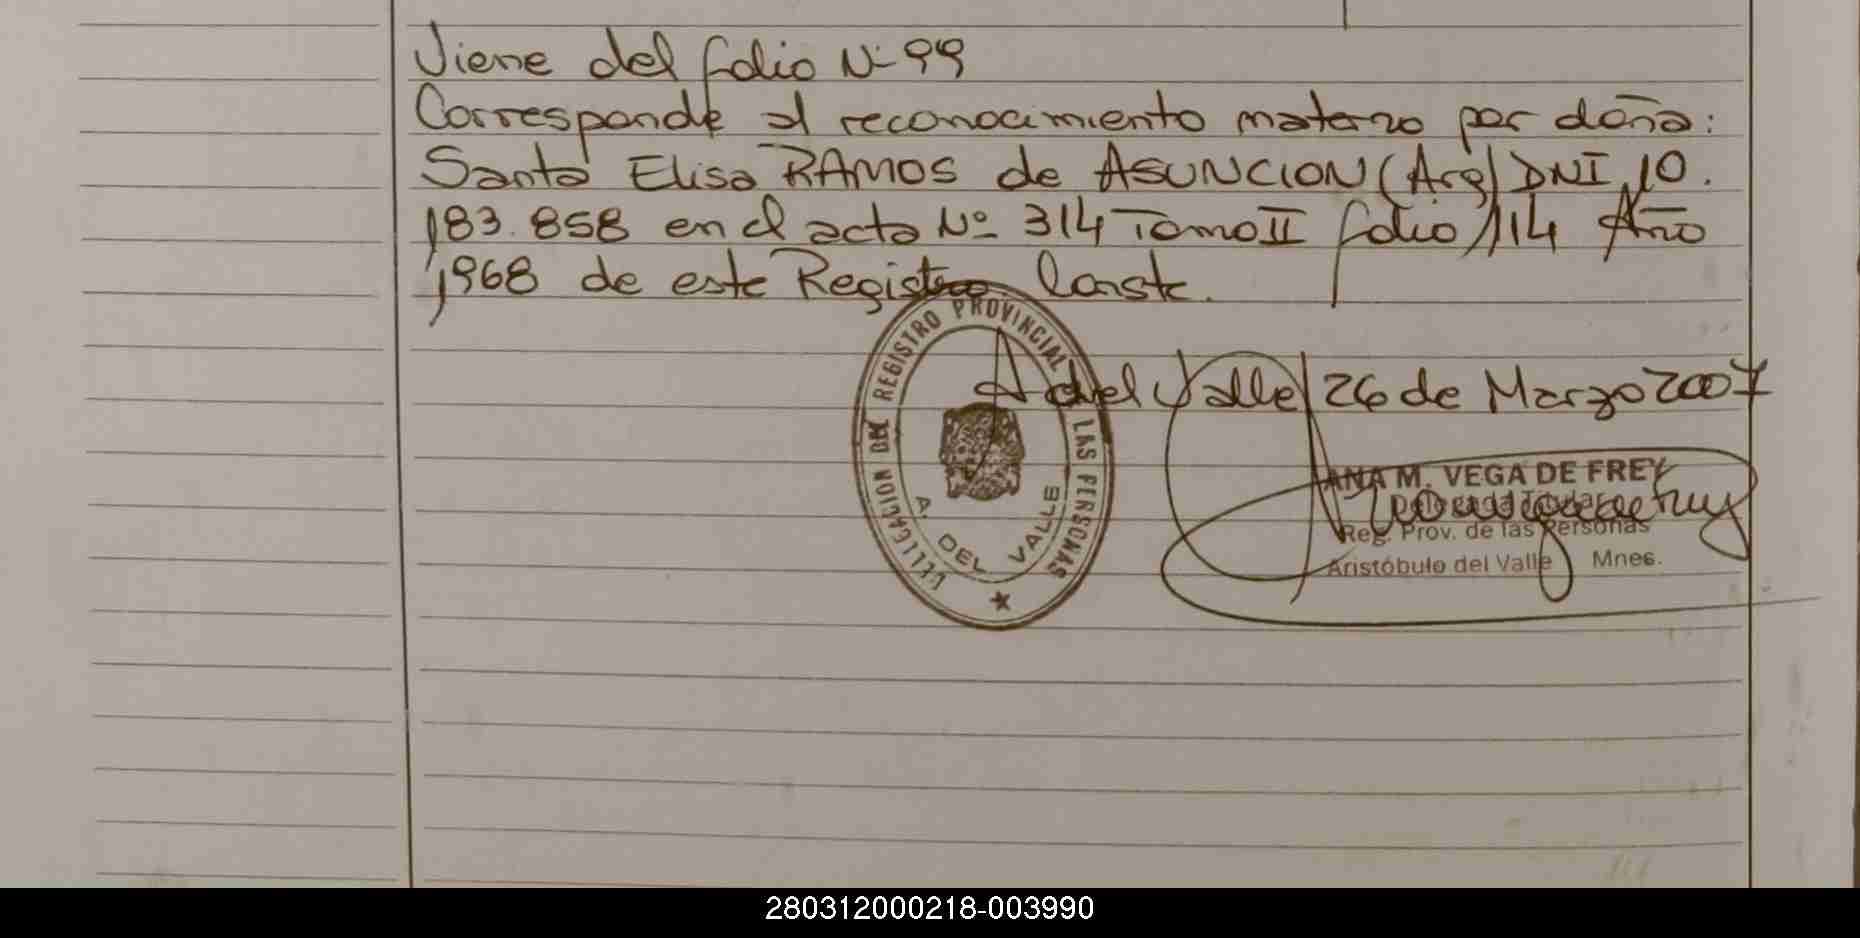 Viene del folio Nº 99
Corresponde al reconocimiento materno por doña:
Santa Elisa RAMOS de ASUNCION (Arg) DNI 10.
183.858 en el acta Nº 314 Tomo II folio 114 Año
1968 de este Registro Conste.
A del Valle 26 de Marzo 2007
DELEGACION DEL REGISTRO PROVINCIAL LAS PERSONAS
A. DEL VALLE
ANA M. VEGA DE FREY
Delegada Titular
Reg. Prov. de las Personas
Aristóbulo del Valle Mnes.
280312000218-003990